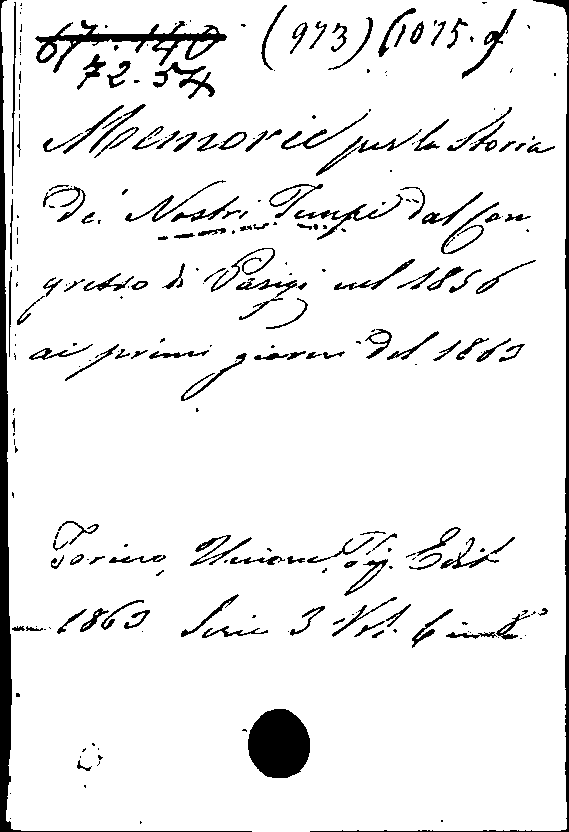 67.140 (973) (1075.g)
72.54
Memorie per la Storia
de' Nostri Tempi dal Con
gresso di Parigi nel 1856
ai primi giorni del 1863
Torino, Unione Tip. Edit
1863 Serie 3 Vol. 6 in 8°